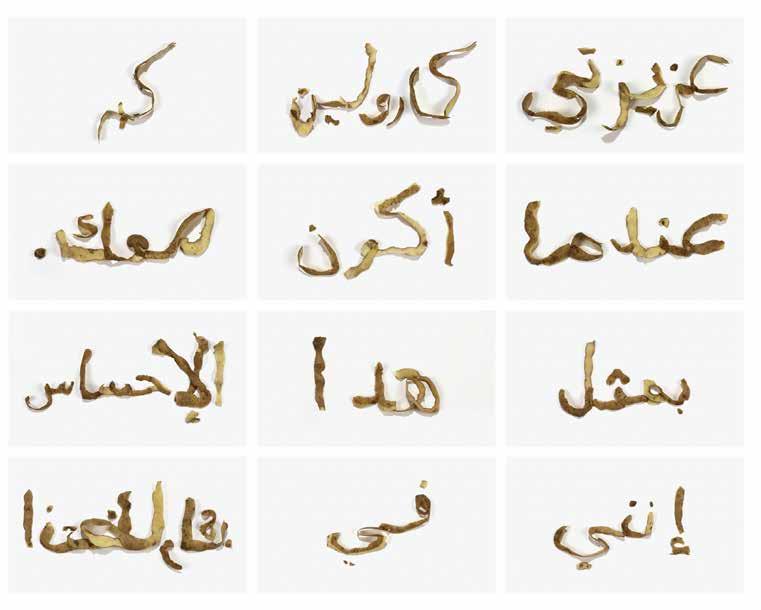 عزيزتي كارولين كم
عندما أكون معك.
بمثل هذا الإحساس
إنني في